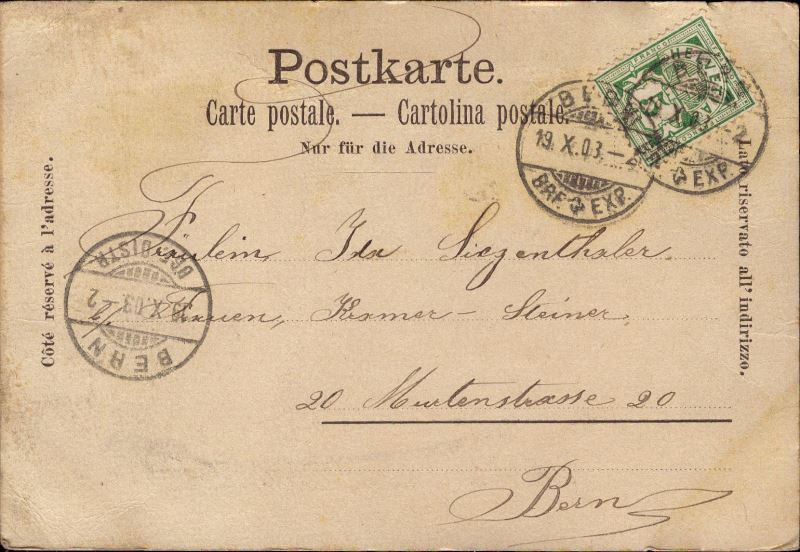 Postkarte.
Carte postale. — Cartolina postale.
Nur für die Adresse.
Côté réservé à l'adresse.
Lato riservato all' indirizzo.
FRANCO
HELVETIA
BERN
19. X. 03. — 2
BRF. EXP.
EXP.
BERN
X. 03 — 2
Fräulein, Ida Siegenthaler.
b/ Frauen, Kramer - Steiner.
20 Murtenstrasse 20
Bern